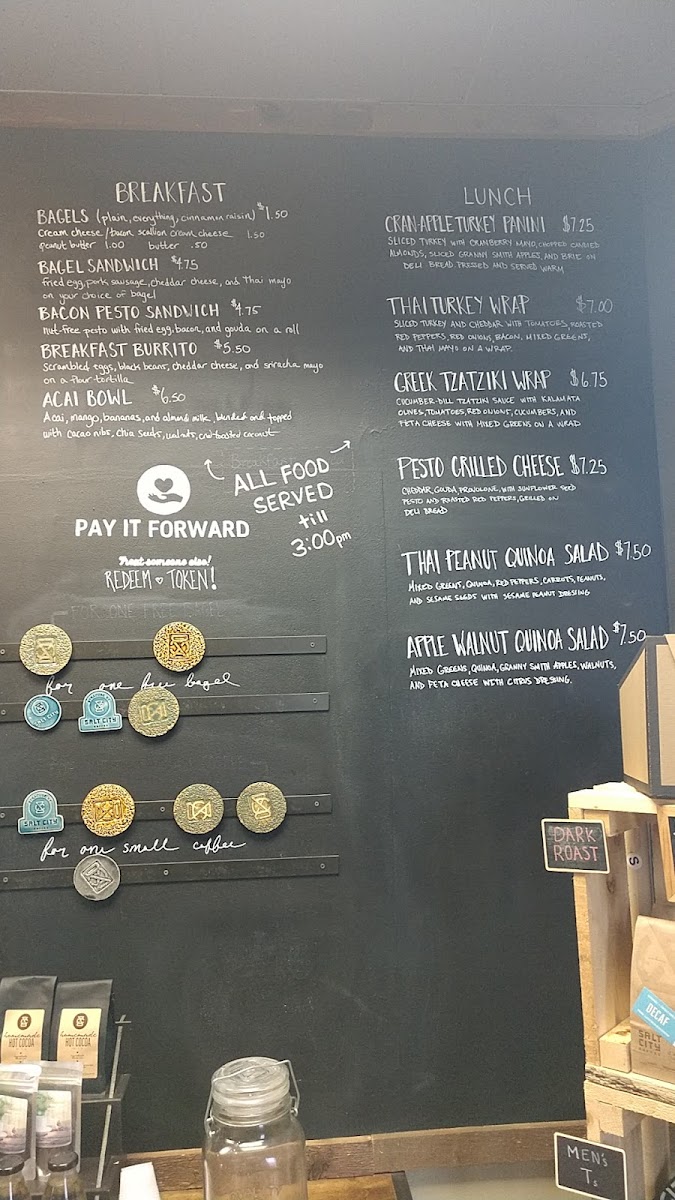 BREAKFAST
BAGELS (plain, everything, cinnamon raisin) $1.50
Cream cheese/bacon scallion cream cheese 1.50
peanut butter 1.00 butter .50
BAGEL SANDWICH $4.75
fried egg, pork sausage, cheddar cheese, and Thai mayo
on your choice of bagel
BACON PESTO SANDWICH $4.75
nut-free pesto with fried egg, bacon, and gouda on a roll
BREAKFAST BURRITO $5.50
Scrambled eggs, black beans, cheddar cheese, and sriracha mayo
on a flour tortilla
ACAI BOWL $6.50
Acai, mango, bananas, and almond milk, blended and topped
with cacao nibs, chia seeds, walnuts, and toasted coconut
ALL FOOD
SERVED
till
3:00pm
PAY IT FORWARD
Treat someone else!
REDEEM TOKEN!
FOR ONE FREE BAGEL
for one free bagel
SALT CITY
SALT CITY
for one small coffee
LUNCH
CRAN-APPLE TURKEY PANINI $7.25
SLICED TURKEY WITH CRANBERRY MAYO, CHOPPED CANDIED
ALMONDS, SLICED GRANNY SMITH APPLES, AND BRIE ON
DELI BREAD. PRESSED AND SERVED WARM
THAI TURKEY WRAP $7.00
SLICED TURKEY AND CHEDDAR WITH TOMATOES, ROASTED
RED PEPPERS, RED ONIONS, BACON, MIXED GREENS,
AND THAI MAYO ON A WRAP.
GREEK TZATZIKI WRAP $6.75
CUCUMBER-DILL TZATZIKI SAUCE WITH KALAMATA
OLIVES, TOMATOES, RED ONIONS, CUCUMBERS, AND
FETA CHEESE WITH MIXED GREENS ON A WRAP
PESTO GRILLED CHEESE $7.25
CHEDDAR, GOUDA, PROVOLONE, WITH SUNFLOWER SEED
PESTO AND ROASTED RED PEPPERS, GRILLED ON
DELI BREAD
THAI PEANUT QUINOA SALAD $7.50
MIXED GREENS, QUINOA, RED PEPPERS, CARROTS, PEANUTS,
AND SESAME SEEDS WITH SESAME PEANUT DRESSING
APPLE WALNUT QUINOA SALAD $7.50
MIXED GREENS, QUINOA, GRANNY SMITH APPLES, WALNUTS,
AND FETA CHEESE WITH CITRUS DRESSING.
DARK
ROAST
S
DECAF
SALT
CITY
homemade
HOT COCOA
homemade
HOT COCOA
MEN'S
Ts